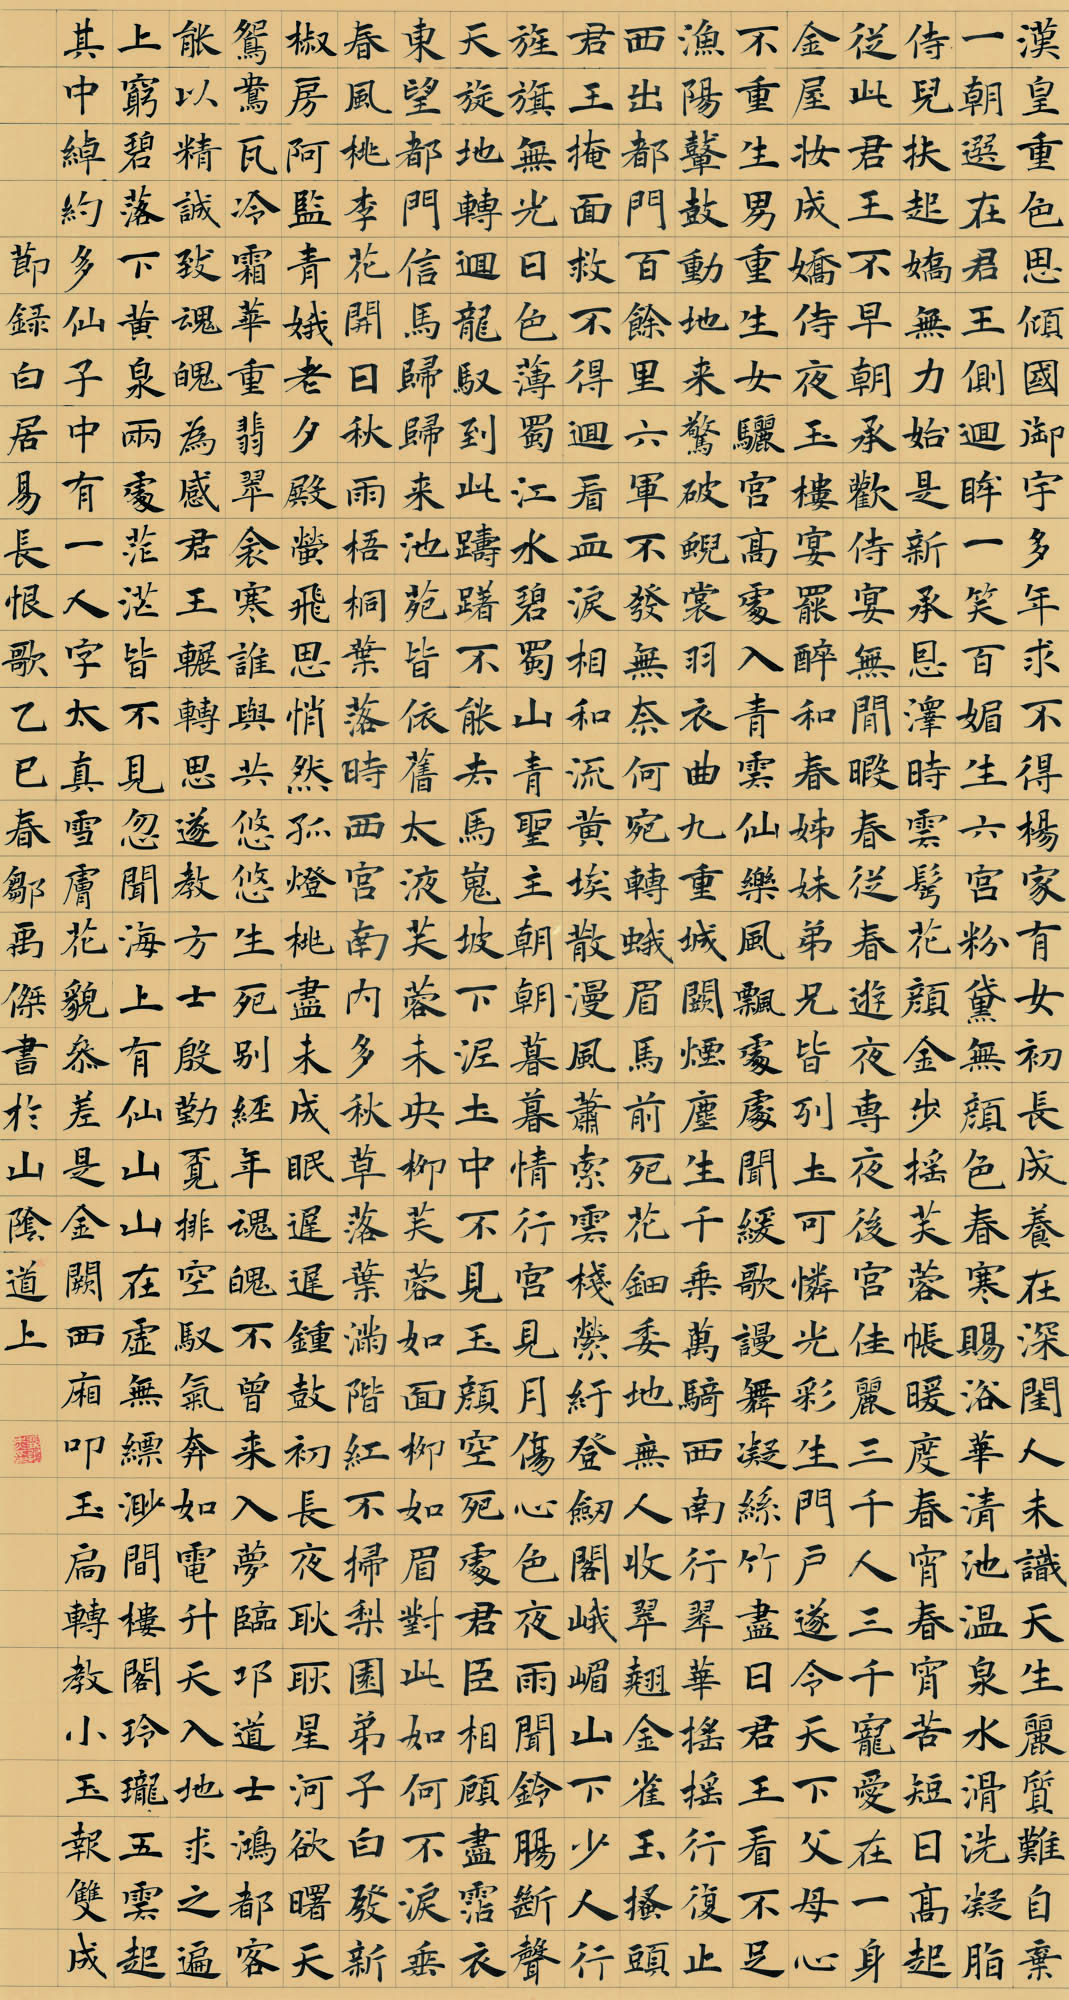 漢皇重色思傾國御宇多年求不得楊家有女初長成養在深閨人未識天生麗質難自棄
一朝選在君王側迴眸一笑百媚生六宮粉黛無顏色春寒賜浴華清池温泉水滑洗凝脂
侍兒扶起嬌無力始是新承恩澤時雲鬢花顏金步搖芙蓉帳暖度春宵春宵苦短日高起
從此君王不早朝承歡侍宴無閒暇春從春遊夜專夜後宮佳麗三千人三千寵愛在一身
金屋妝成嬌侍夜玉樓宴罷醉和春姊妹弟兄皆列土可憐光彩生門戶遂令天下父母心
不重生男重生女驪宮高處入青雲仙樂風飄處處聞緩歌謾舞凝絲竹盡日君王看不足
漁陽鼙鼓動地来驚破鯢裳羽衣曲九重城闕煙塵生千乘萬騎西南行翠華搖搖行復止
西出都門百餘里六軍不發無奈何宛轉蛾眉馬前死花鈿委地無人收翠翹金雀玉搔頭
君王掩面救不得迴看血淚相和流黃埃散漫風蕭索雲棧縈紆登劒閣峨嵋山下少人行
旌旗無光日色薄蜀江水碧蜀山青聖主朝朝暮暮情行宮見月傷心色夜雨聞鈴腸斷聲
天旋地轉迴龍馭到此躊躇不能去馬嵬坡下泥土中不見玉顏空死處君臣相顧盡霑衣
東望都門信馬歸歸来池苑皆依舊太液芙蓉未央柳芙蓉如面柳如眉對此如何不淚垂
春風桃李花開日秋雨梧桐葉落時西宮南内多秋草落葉滿階紅不掃梨園弟子白發新
椒房阿監青娥老夕殿螢飛思悄然孤燈挑盡未成眠遲遲鍾鼓初長夜耿耿星河欲曙天
鴛鴦瓦冷霜華重翡翠衾寒誰與共悠悠生死別經年魂魄不曾来入夢臨邛道士鴻都客
能以精誠致魂魄為感君王輾轉思遂教方士殷勤覓排空馭氣奔如電升天入地求之遍
上窮碧落下黃泉兩處茫茫皆不見忽聞海上有仙山山在虛無縹渺間樓閣玲瓏五雲起
其中綽約多仙子中有一人字太真雪膚花貌參差是金闕西廂叩玉扃轉教小玉報雙成
節録白居易長恨歌乙巳春鄒禹傑書於山陰道上